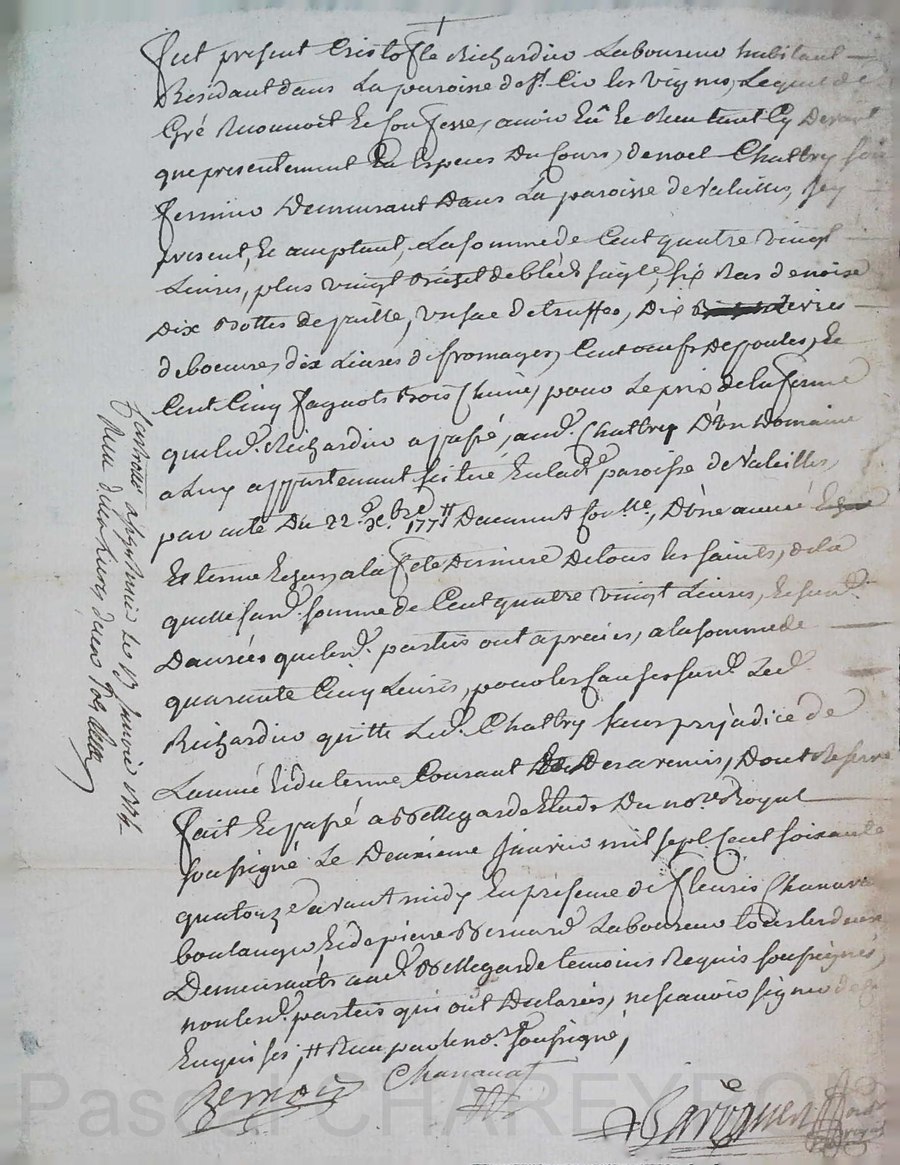 fut present Cristofle Richardin Laboureur habitant
Residant dans La paroisse de st. Cir les vignes, Lequel de
Gré Reconnoit Et Confesse, avoir Eû Et Reçu tant Cy devant
que presentement En Especes Du Cours, de noel Chattry son
fermier Demeurant Dans La paroisse de valeilles, Icy
present, Et aceptant, La somme de Cent quatre vingt
Livres, plus vingt de bled seigle, six Ras de noise
Dix Bottes de paille, un sac de truffes, Dix Livres
de boeure, dix Livres de fromages, Cent oeufs De poules, Et
Cent Cinq fagots trois Chene, pour Le prix de la ferme
que led. Richardin a passé, aud. Chattry D'un Domaine
a Luy appartenant scitué En lad. paroisse de valeilles,
par acte Du 22 xbre 1771 # D'une année
Et terme Echu, a la fete Derniere De tous les saints, de la
quelle sus. somme de Cent quatre vingt Livres, Et sus.
Danrées que les. parties ont apreciées, a la somme de
quarante Cinq Livres, pour les Causes sus. Led.
Richardin quitte Led. Chattry sans prejudice de
L'année Et du terme Courant Des avenir, Dont Reserve
fait Et passé a Bellegarde Etude Du no.re Royal
soussigné Le Deuxieme janvier mil sept Cent soixante
quatorze avant midy En presence de fleuris Chanavat
boulanger, Et de pierre Bernard Laboureur tous les deux
Demeurants aud. Bellegarde temoins Requis soussignés,
non les. parties qui ont Declarés, ne sçavoir signer de ce
Enquises, # Reçu par le no.re soussigné,
Bernard Chanavat
Controllé a le 13 janvier 1774
Reçu
Pascal CHAREYRON